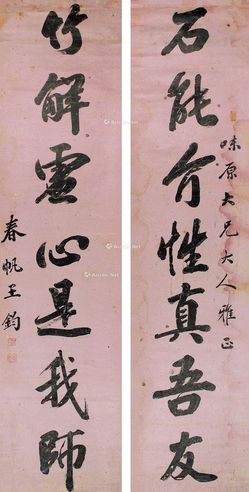 石能介性真吾友
味原大兄大人雅正
竹解虚心是我師
春帆王鈞